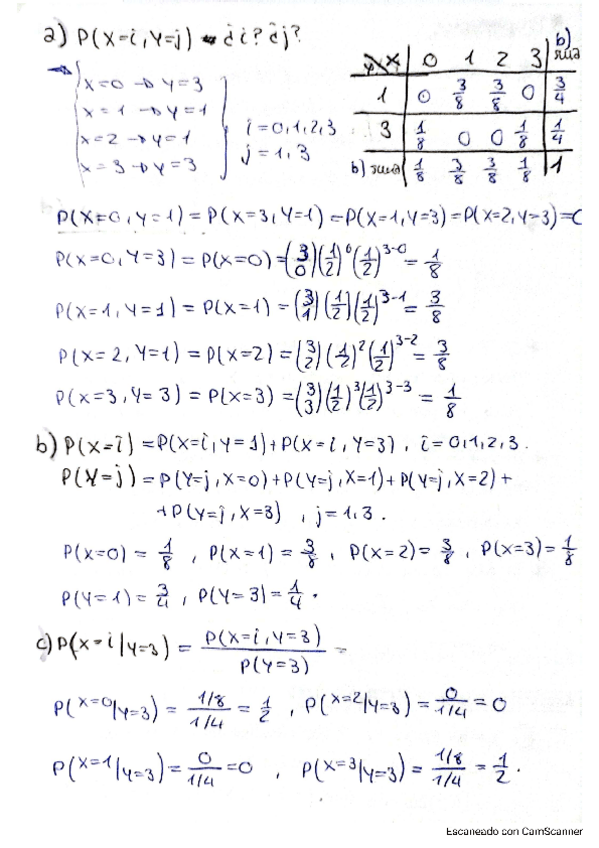 a) P(X=i, Y=j) → ¿i? ¿j?
x=0 → y=3
x=1 → y=1
x=2 → y=1
x=3 → y=3
i=0,1,2,3
j=1,3
b)
Y\X 0 1 2 3
1 0 3/8 3/8 0 3/4
3 1/8 0 0 1/8 1/4
b) 1/8 3/8 3/8 1/8 1
P(X=0, Y=1) = P(X=3, Y=1) = P(X=1, Y=3) = P(X=2, Y=3) = 0
P(X=0, Y=3) = P(X=0) = (3 0)(1/2)^0(1/2)^3-0 = 1/8
P(X=1, Y=1) = P(X=1) = (3 1)(1/2)(1/2)^3-1 = 3/8
P(X=2, Y=1) = P(X=2) = (3 2)(1/2)^2(1/2)^3-2 = 3/8
P(X=3, Y=3) = P(X=3) = (3 3)(1/2)^3(1/2)^3-3 = 1/8
b) P(X=i) = P(X=i, Y=1) + P(X=i, Y=3), i=0,1,2,3.
P(Y=j) = P(Y=j, X=0) + P(Y=j, X=1) + P(Y=j, X=2) +
+ P(Y=j, X=3), j=1,3.
P(X=0) = 1/8, P(X=1) = 3/8, P(X=2) = 3/8, P(X=3) = 1/8
P(Y=1) = 3/4, P(Y=3) = 1/4.
c) P(X=i/Y=3) = P(X=i, Y=3)/P(Y=3) =
P(X=0/Y=3) = 1/8/1/4 = 1/2, P(X=2/Y=3) = 0/1/4 = 0
P(X=1/Y=3) = 0/1/4 = 0, P(X=3/Y=3) = 1/8/1/4 = 1/2.
Escaneado con CamScanner